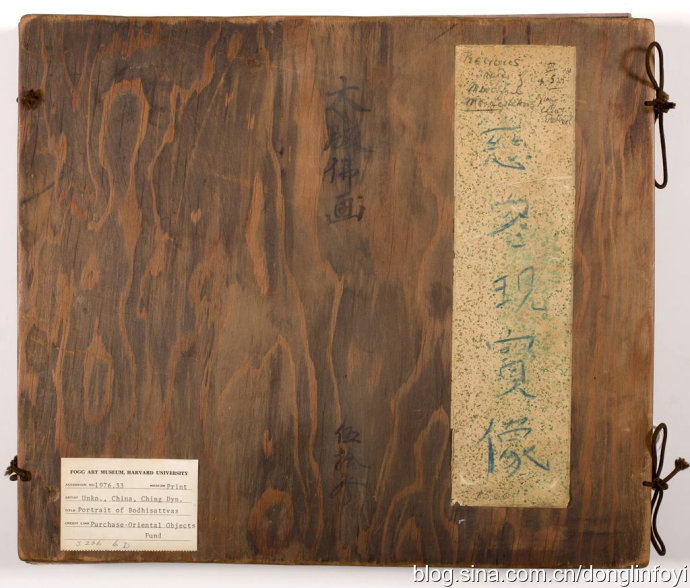 RELIGIOUS
慈容現實像
木版佛画
伍拾入
FOGG ART MUSEUM, HARVARD UNIVERSITY
ACCESSION NO. 1976.33 MEDIUM Print
ARTIST Unkn., China, Ching Dyn.
TITLE Portrait of Bodhisattvas
CREDIT LINE Purchase-Oriental Objects
Fund
blog.sina.com.cn/donglinfoyi